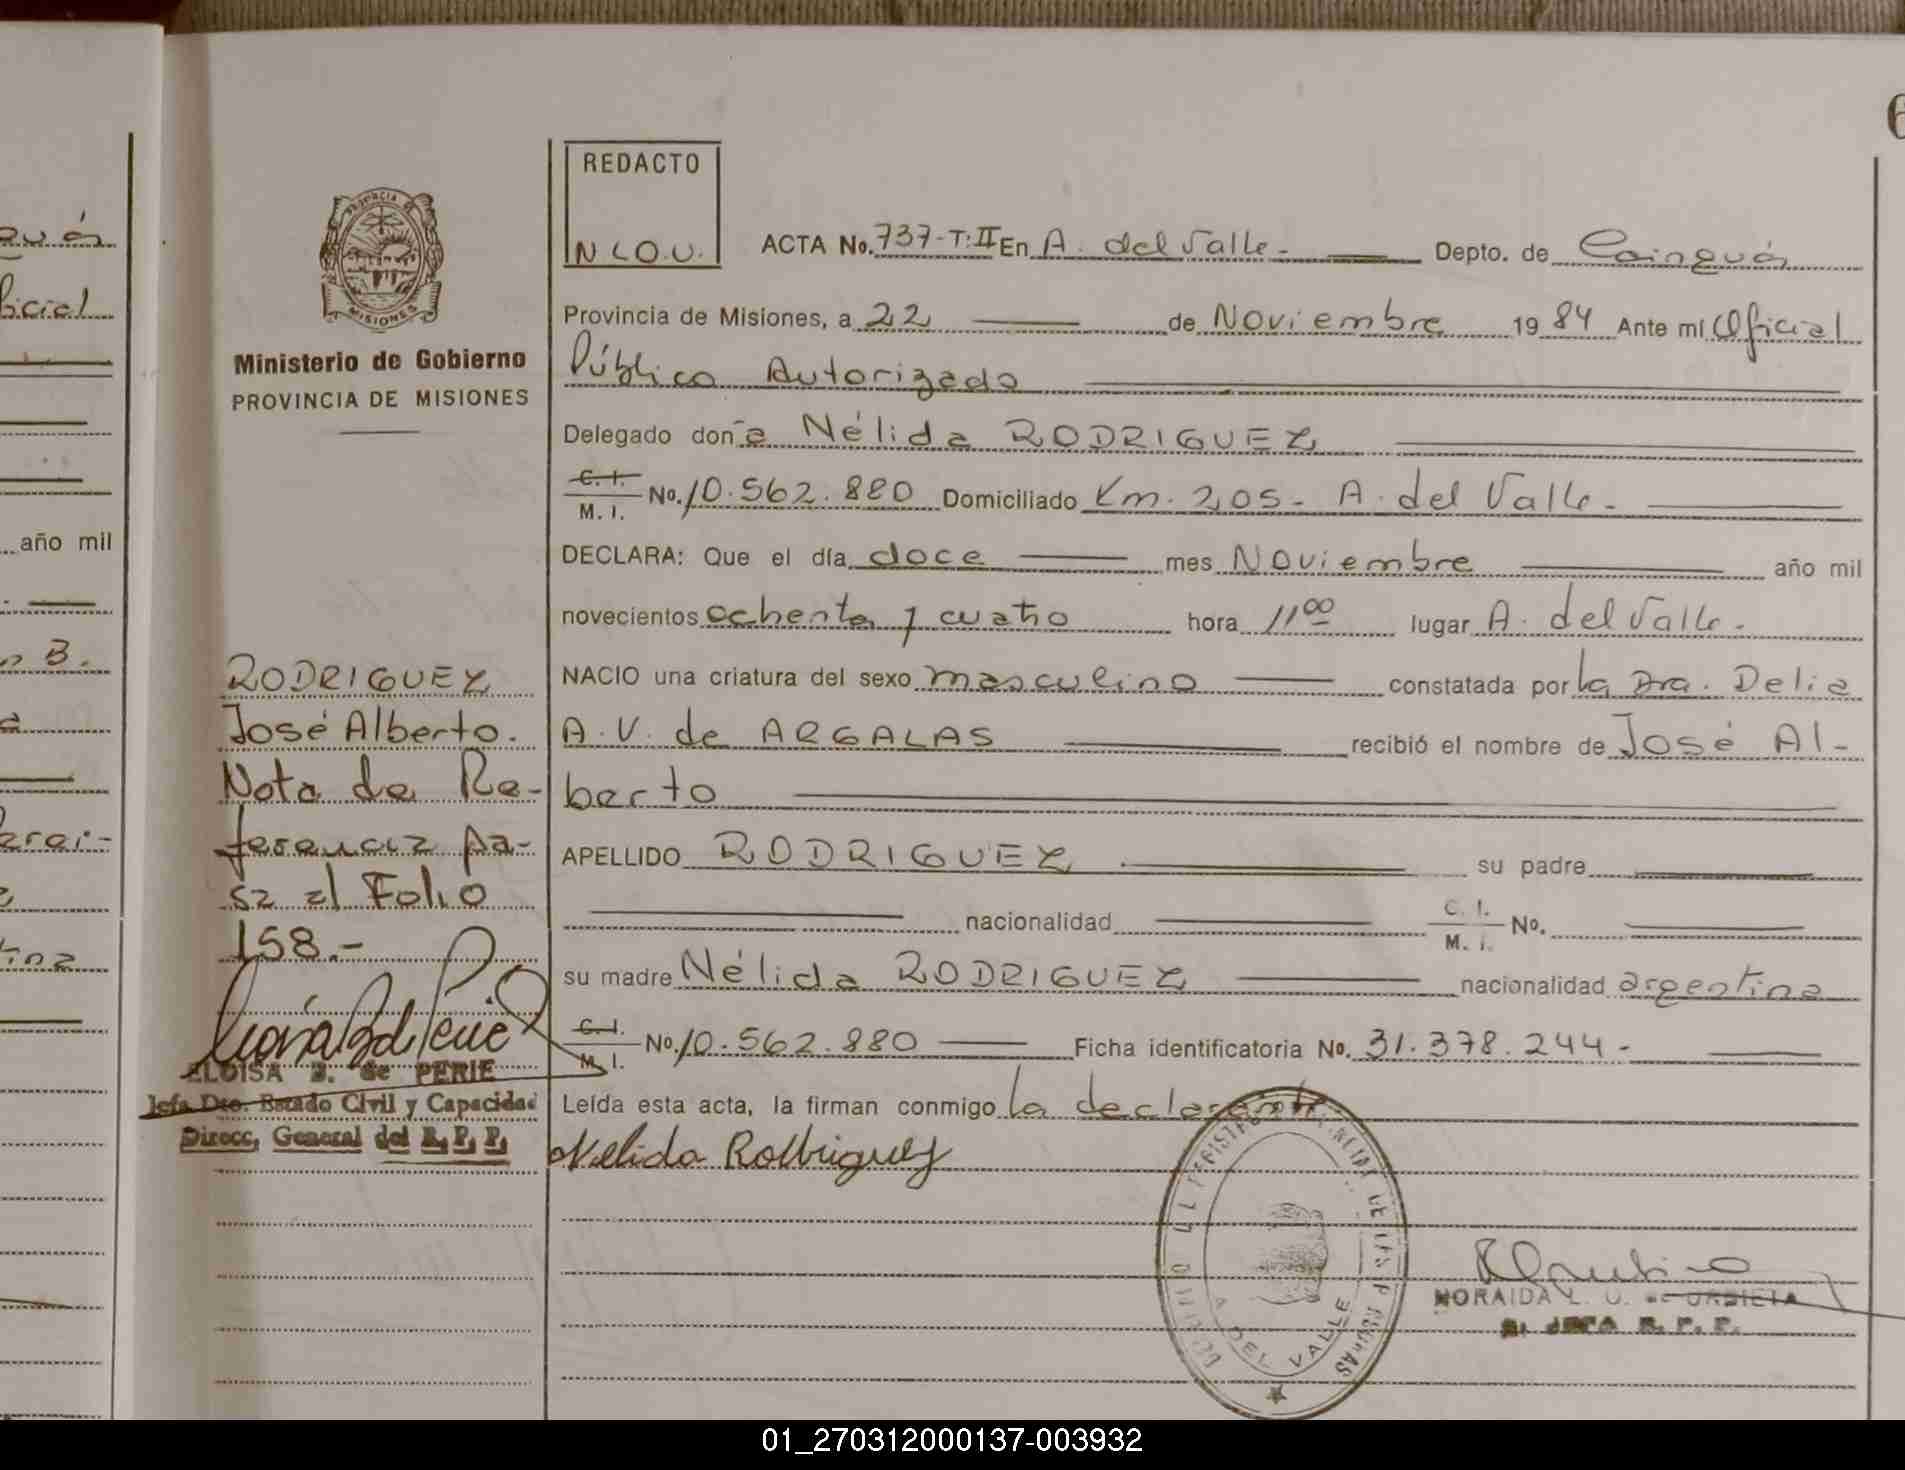 6
REDACTO
N L O. U.
ACTA No. 737-T:II En A. del Valle - Depto. de Cainguás
PROVINCIA DE
MISIONES
Provincia de Misiones, a 22 de Noviembre 19 84 Ante mí Oficial
Ministerio de Gobierno
PROVINCIA DE MISIONES
Público Autorizado
Delegado don a Nélida RODRIGUEZ
C. I.
M. I. No. 10.562.880 Domiciliado Km. 205 - A. del Valle -
DECLARA: Que el día doce mes Noviembre año mil
novecientos ochenta y cuatro hora 11 00 lugar A. del Valle -
NACIO una criatura del sexo masculino constatada por la Dra. Delia
A. V. de ARGALAS recibió el nombre de José Al-
berto
APELLIDO RODRIGUEZ su padre
nacionalidad C. I.
M. I. No.
su madre Nélida RODRIGUEZ nacionalidad argentina
C. I.
M. I. No. 10.562.880 Ficha identificatoria No. 31.378.244 -
Leída esta acta, la firman conmigo la declarante
Nelida Rodriguez
RODRIGUEZ
José Alberto.
Nota de Re-
ferencia pa-
sa al Folio
158.-
ELOISA B. de PERIE
Jefa Dto. Estado Civil y Capacidad
Direcc. General del R. P. P.
A DEL VALLE
NORAIDA L. U. de URBIETA
JEFA R. P. P.
año mil
01_270312000137-003932